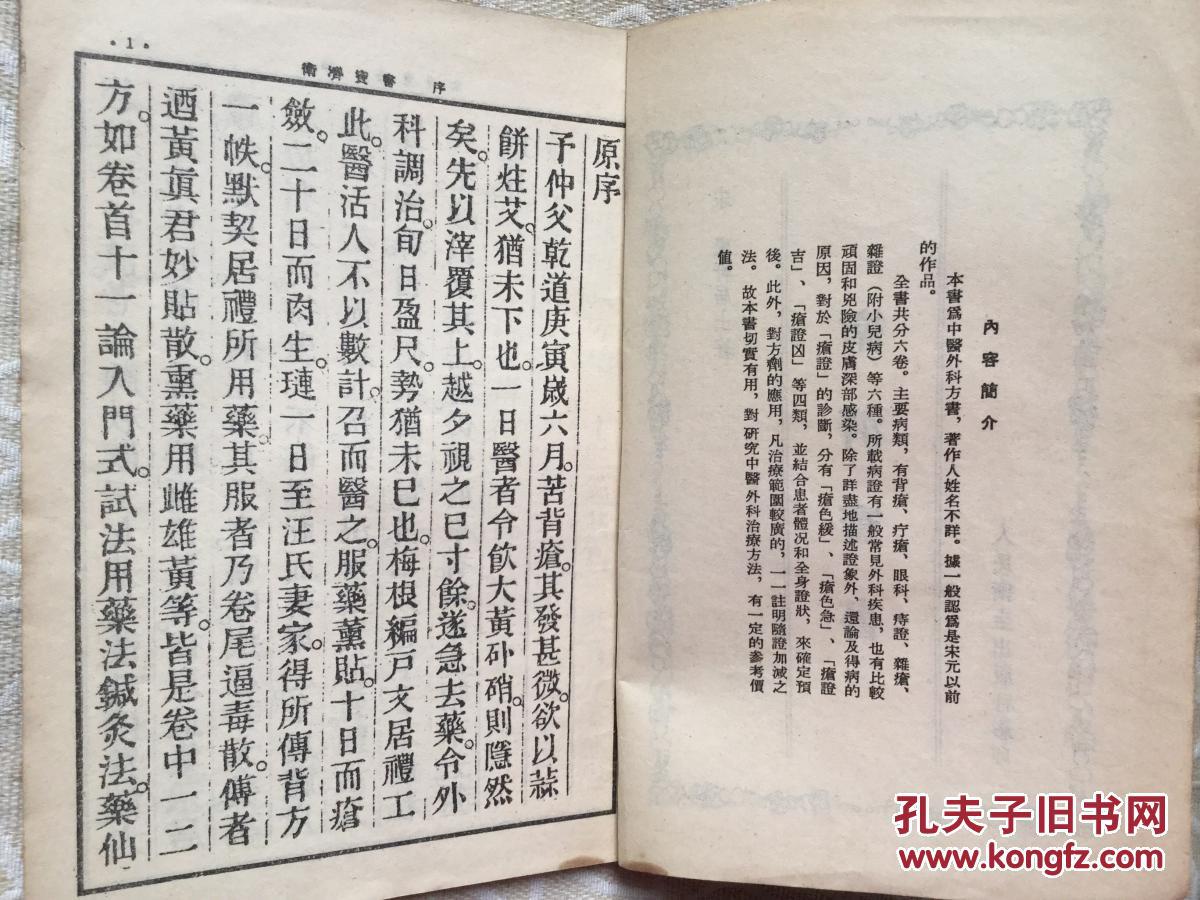 內容簡介
本書爲中醫外科方書，著作人姓名不詳。據一般認爲是宋元以前
的作品。
全書共分六卷。主要病類，有背瘡、疔瘡、眼科、痔證、雜瘡、
雜證（附小兒病）等六種。所載病證有一般常見外科疾患，也有比較
頑固和兇險的皮膚深部感染。除了詳盡地描述證象外，還論及得病的
原因，對於「瘡證」的診斷，分有「瘡色緩」、「瘡色急」、「瘡證
吉」、「瘡證凶」等四類，並結合患者體況和全身證狀，來確定預
後。此外，對方劑的應用，凡治療範圍較廣的，一一註明隨證加減之
法。故本書切實有用，對研究中醫外科治療方法，有一定的參考價
值。
衛濟寶書 序
·1·
原序
予仲父乾道庚寅歲六月。苦背瘡。其發甚微。欲以蒜
餅炷艾。猶未下也。一日醫者令飲大黃朴硝。則隱然
矣。先以滓覆其上。越夕視之已寸餘。遂急去藥。令外
科調治。旬日盈尺。勢猶未已也。梅根編戸文居禮工
此。醫活人不以數計。召而醫之。服藥薰貼。十日而瘡
斂。二十日而肉生。璉一日至汪氏妻家。得所傳背方
一帙。默契居禮所用藥。其服者乃卷尾逼毒散。傅者
迺黃眞君妙貼散。熏藥用雌雄黃等。皆是卷中一二
方。如卷首十一論入門式。試法用藥法鍼灸法。藥仙
孔夫子旧书网
www.kongfz.com